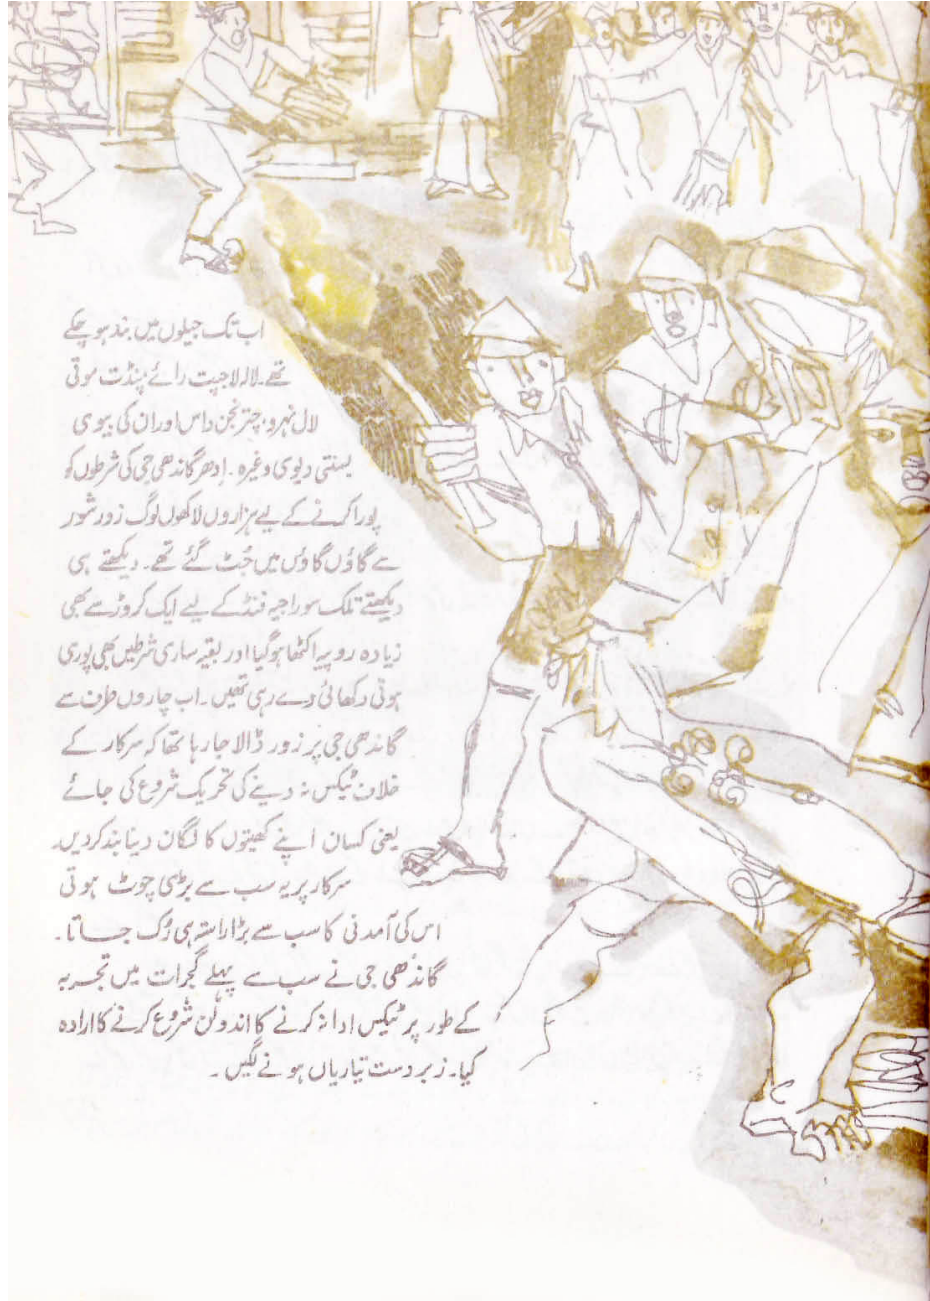 اب تک جیلوں میں بند ہو چکے
تھے۔ لالہ لاجپت رائے پنڈت موتی
لال نہرو، چترنجن داس اور ان کی بیوی
بسنتی دیوی وغیرہ۔ اِدھر گاندھی جی کی شرطوں کو
پورا کرنے کے لیے ہزاروں لاکھوں لوگ زور شور
سے گاؤں گاؤں میں جُٹ گئے تھے۔ دیکھتے ہی
دیکھتے تلک سوراجیہ فنڈ کے لیے ایک کروڑ سے بھی
زیادہ روپیہ اکٹھا ہو گیا اور بقیہ ساری شرطیں بھی پوری
ہوتی دکھائی دے رہی تھیں۔ اب چاروں طرف سے
گاندھی جی پر زور ڈالا جا رہا تھا کہ سرکار کے
خلاف ٹیکس نہ دینے کی تحریک شروع کی جائے
یعنی کسان اپنے کھیتوں کا لگان دینا بند کر دیں۔
سرکار پر یہ سب سے بڑی چوٹ ہوتی
اس کی آمدنی کا سب سے بڑا راستہ ہی رُک جاتا۔
گاندھی جی نے سب سے پہلے گجرات میں تجربہ
کے طور پر ٹیکس ادا نہ کرنے کا اندولن شروع کرنے کا ارادہ
کیا۔ زبردست تیاریاں ہونے لگیں۔